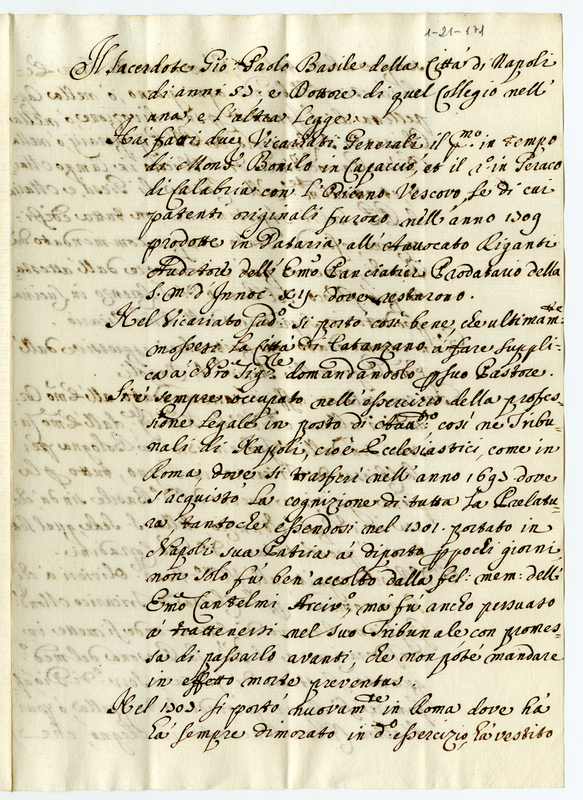 1-21-171
Il Sacerdote Gio: Paolo Basile della Città di Napoli
di anni 53. e Dottore di quel Collegio nell'
una, e l'altra Legge.
Ha fatti due Vicariati Generali il pmo. in tempo
di Monsr. Bonilo in Capaccio, et il 2o. in Gerace
di Calabria con l'Odierno Vescovo, le di cui
patenti originali furono nell'anno 1709
prodotte in Dataria all'Avvocato Riganti
Auditore dell'Emo. Panciatici Prodatario della
S. M. d'Innoc. XII. dove restarono.
Nel Vicariato sudo. si portò così bene, che ultimamte:
mossesi la Città di Catanzano à fare suppli=
ca à Nro Sigre. domandandolo p suo Pastore.
Si è sempre occupato nell'essercizio della profes=
sione legale in posto di Avvto. così ne Tribu=
nali di Napoli, cioè Ecclesiastici, come in
Roma, dove si trasferì nell'anno 1693 dove
s'acquistò la cognizione di tutta la Prelatu=
ra tantoche essendosi nel 1701. portato in
Napoli sua Patria à diporto p pochi giorni,
non solo fù ben'accolto dalla fel: mem: dell'
Emo Cantelmi Arcivo., mà fù ancho persuaso
à trattenersi nel suo Tribunale con promes=
sa di passarlo avanti, che non potè mandare
in effetto morte preventus.
Nel 1703. si portò nuovamte. in Roma dove hà
hà sempre dimorato in do. essercizio, hà vestito